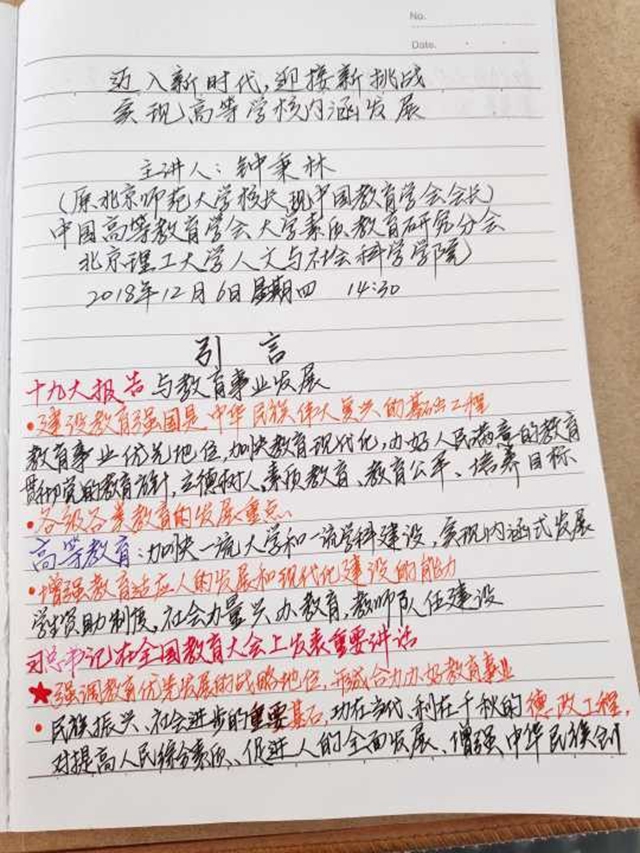 No.
Date.
迈入新时代,迎接新挑战
实现高等学校内涵发展
主讲人:钟秉林
(原北京师范大学校长现中国教育学会会长)
中国高等教育学会大学素质教育研究分会
北京理工大学人文与社会科学学院)
2018年12月6日星期四 14:30
引言
十九大报告与教育事业发展
•建设教育强国是中华民族伟大复兴的基础工程
教育事业优先地位,加快教育现代化,办好人民满意的教育
贯彻党的教育方针,立德树人、素质教育、教育公平、培养目标
•各级各类教育的发展重点:
高等教育:加快一流大学和一流学科建设,实现内涵式发展
•增强教育适应人的发展和现代化建设的能力
学生资助制度,社会力量兴办教育,教师队伍建设
习总书记在全国教育大会上发表重要讲话
★强调教育优先发展的战略地位,形成合力办好教育事业
•民族振兴、社会进步的重要基石,功在当代、利在千秋的德政工程,
对提高人民综合素质、促进人的全面发展、增强中华民族创